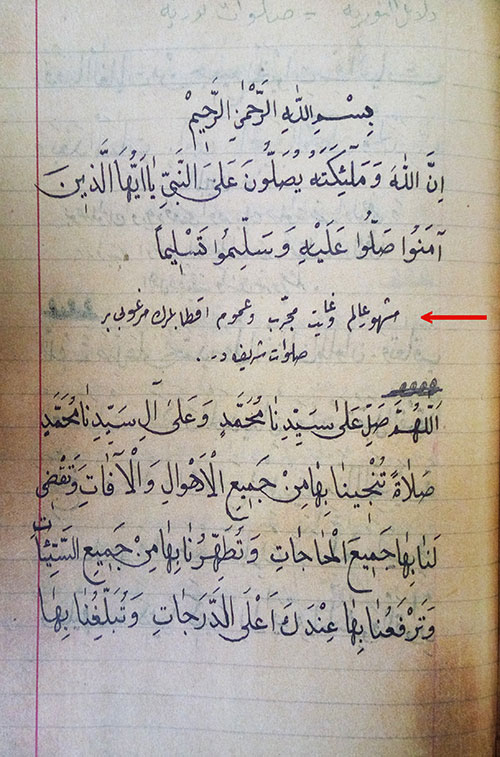 دلائل النوريه = صلوات نوريه
بِسْمِ اللّٰهِ الرَّحْمٰنِ الرَّحِيمِ
اِنَّ اللّٰهَ وَ مَلٰٓئِكَتَهُ يُصَلُّونَ عَلَى النَّبِيِّ يَا اَيُّهَا الَّذِينَ
آمَنُوا صَلُّوا عَلَيْهِ وَ سَلِّمُوا تَسْلِيماً
مشهور عالم و غايت مجرّب و عموم اقطابلرك مرغوبى بر
صلوات شريفه در.
اَللّٰهُمَّ صَلِّ عَلٰى سَيِّدِنَا مُحَمَّدٍ وَ عَلٰى آلِ سَيِّدِنَا مُحَمَّدٍ
صَلَاةً تُنْجِينَا بِهَا مِنْ جَمِيعِ الْاَهْوَالِ وَ الْآفَاتِ وَ تَقْضِى
لَنَا بِهَا جَمِيعَ الْحَاجَاتِ وَ تُطَهِّرُنَا بِهَا مِنْ جَمِيعِ السَّيِّئَاتِ
وَ تَرْفَعُنَا بِهَا عِنْدَكَ اَعْلَى الدَّرَجَاتِ وَ تُبَلِّغُنَا بِهَا